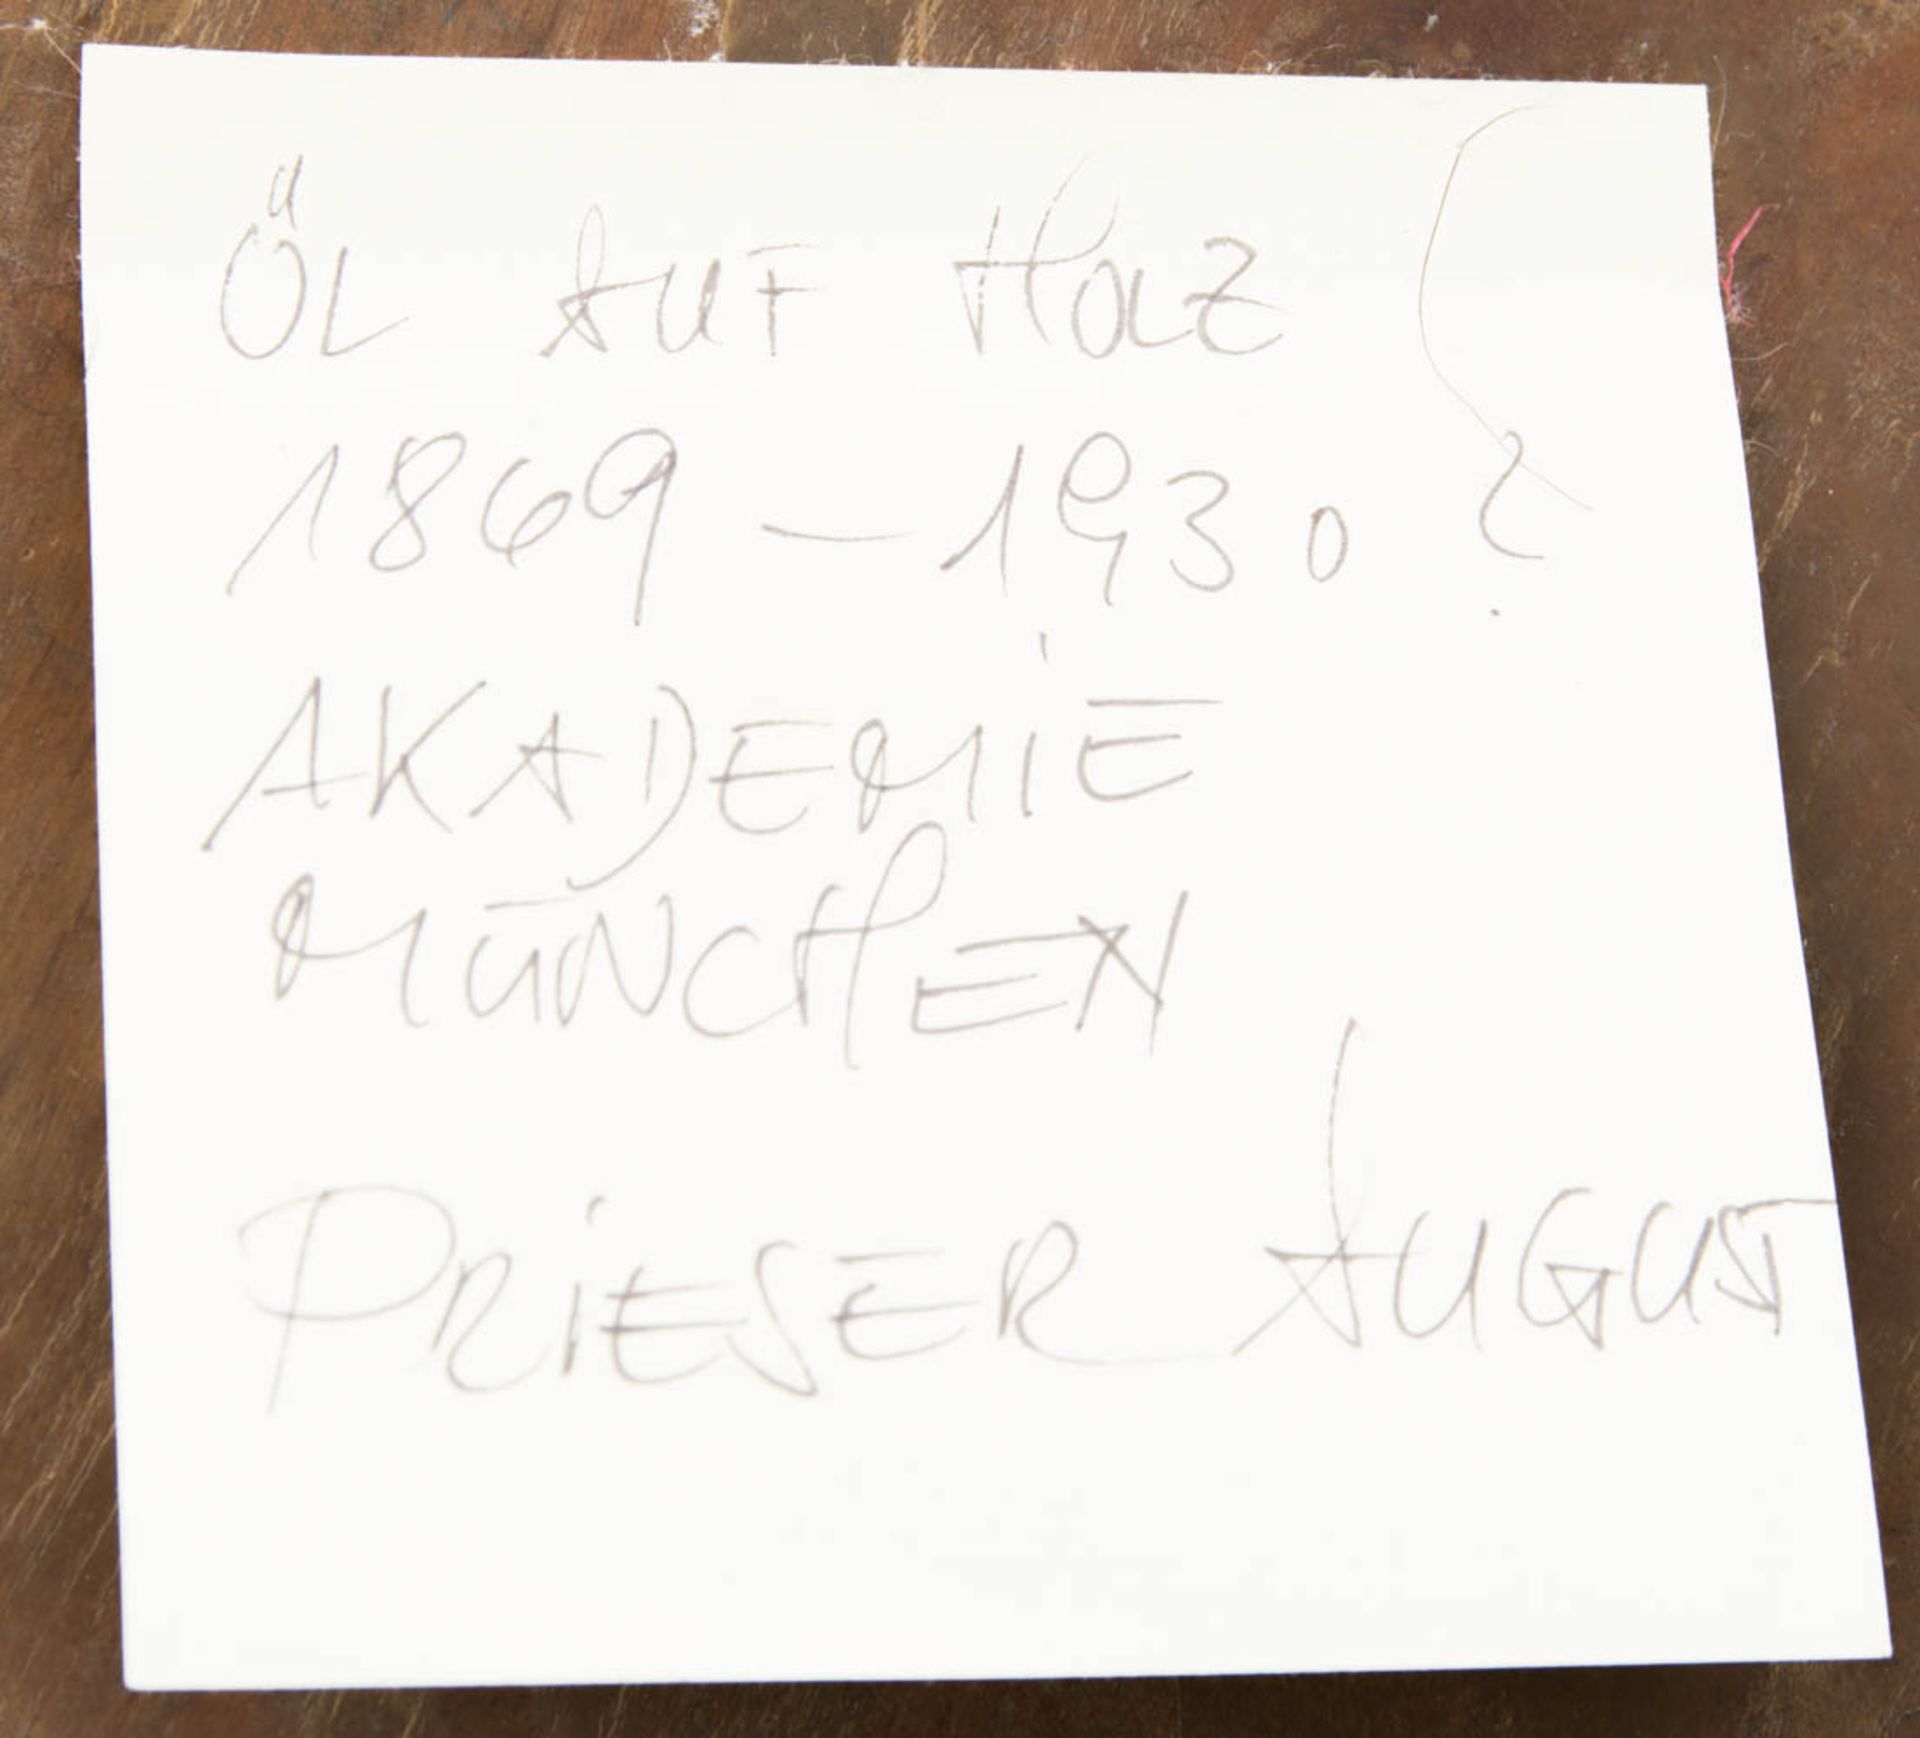 ÖL AUF HOLZ
1869 – 1930 ?
AKADEMIE
MÜNCHEN
PRIESER AUGUST